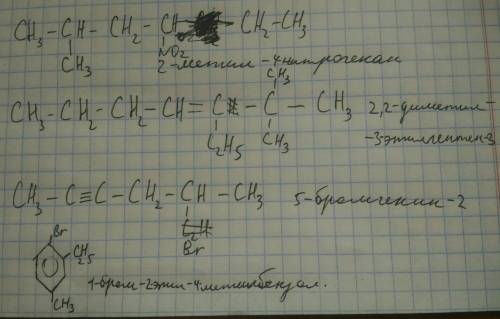 CH₃ - CH - CH₂ - CH - CH₂ - CH₃
CH₃ NO₂
2-метил-4нитрогексан
CH₃
CH₃ - CH₂ - CH₂ - CH = C - C - CH₃ 2,2-диметил-
C₂H₅ CH₃ -3-этилгептен-3
CH₃ - C ≡ C - CH₂ - CH - CH₃ 5-бромгексин-2
Br
Br
C₂H₅
1-бром-2этил-4метилбензол.
CH₃